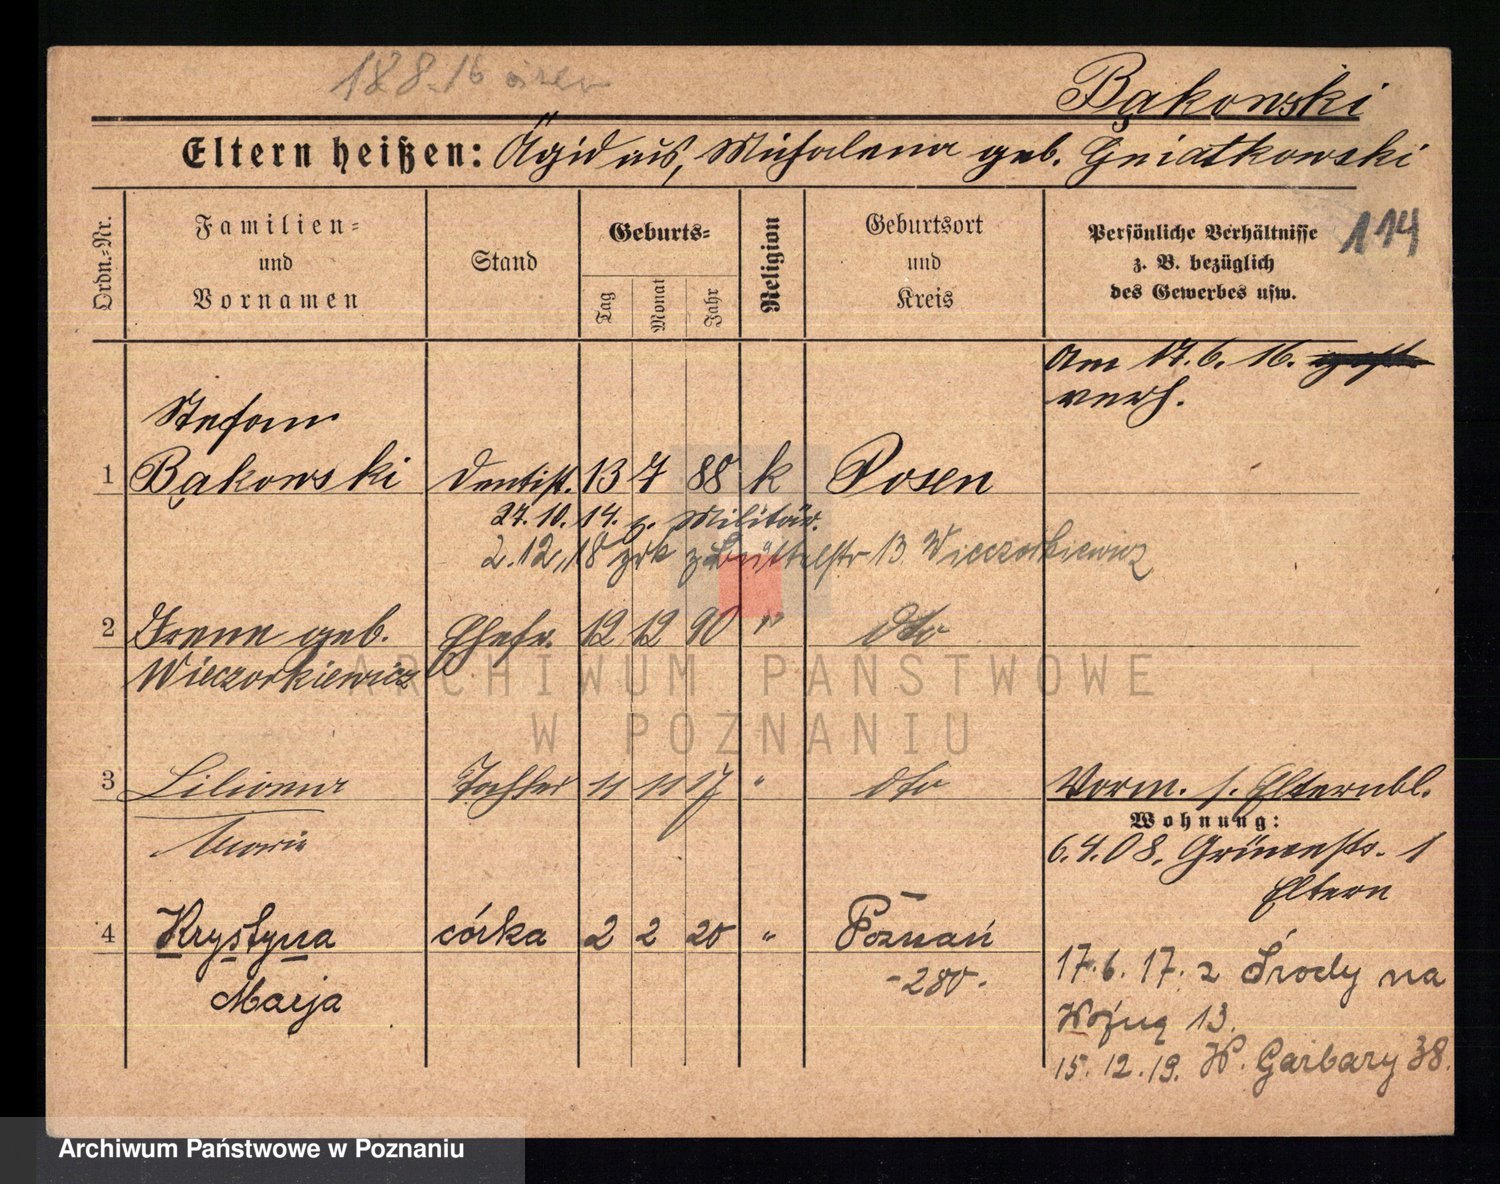 188.16
Bąkowski
Eltern heißen: Ägidius, Michalena geb. Gniatkowski
114
Ordn.-Nr.
Familien- und Vornamen
Stand
Geburts-
Tag
Monat
Jahr
Religion
Geburtsort und Kreis
Persönliche Verhältnisse
z. B. bezüglich
des Gewerbes usw.
Am 17.6.16.
verh.
Stefan
1 Bąkowski Dentist. 13 7 88 k Posen
27.10.14. z. Militär.
2.12.18 zrk z Büttelstr 13 Wieczorkiewicz
2 Irene geb. Ehefr. 12 12 90 " dto
Wieczorkiewicz
3 Liliana Tochter 11 11 17 " dto
Marie
Vorm. s. Elternbl.
Wohnung:
6.4.08. Grünestr. 1
Eltern
4 Krystyna córka 2 2 20 " Poznań
Marja
-280-
17.6.17. z Środy na
Woźną 13.
15.12.19. W. Garbary 38.
ARCHIWUM PAŃSTWOWE
W POZNANIU
Archiwum Państwowe w Poznaniu